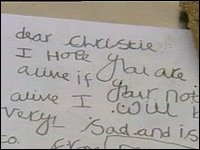 dear Christie
I Hope you are
alive if your not
alive I will b
very sad and is